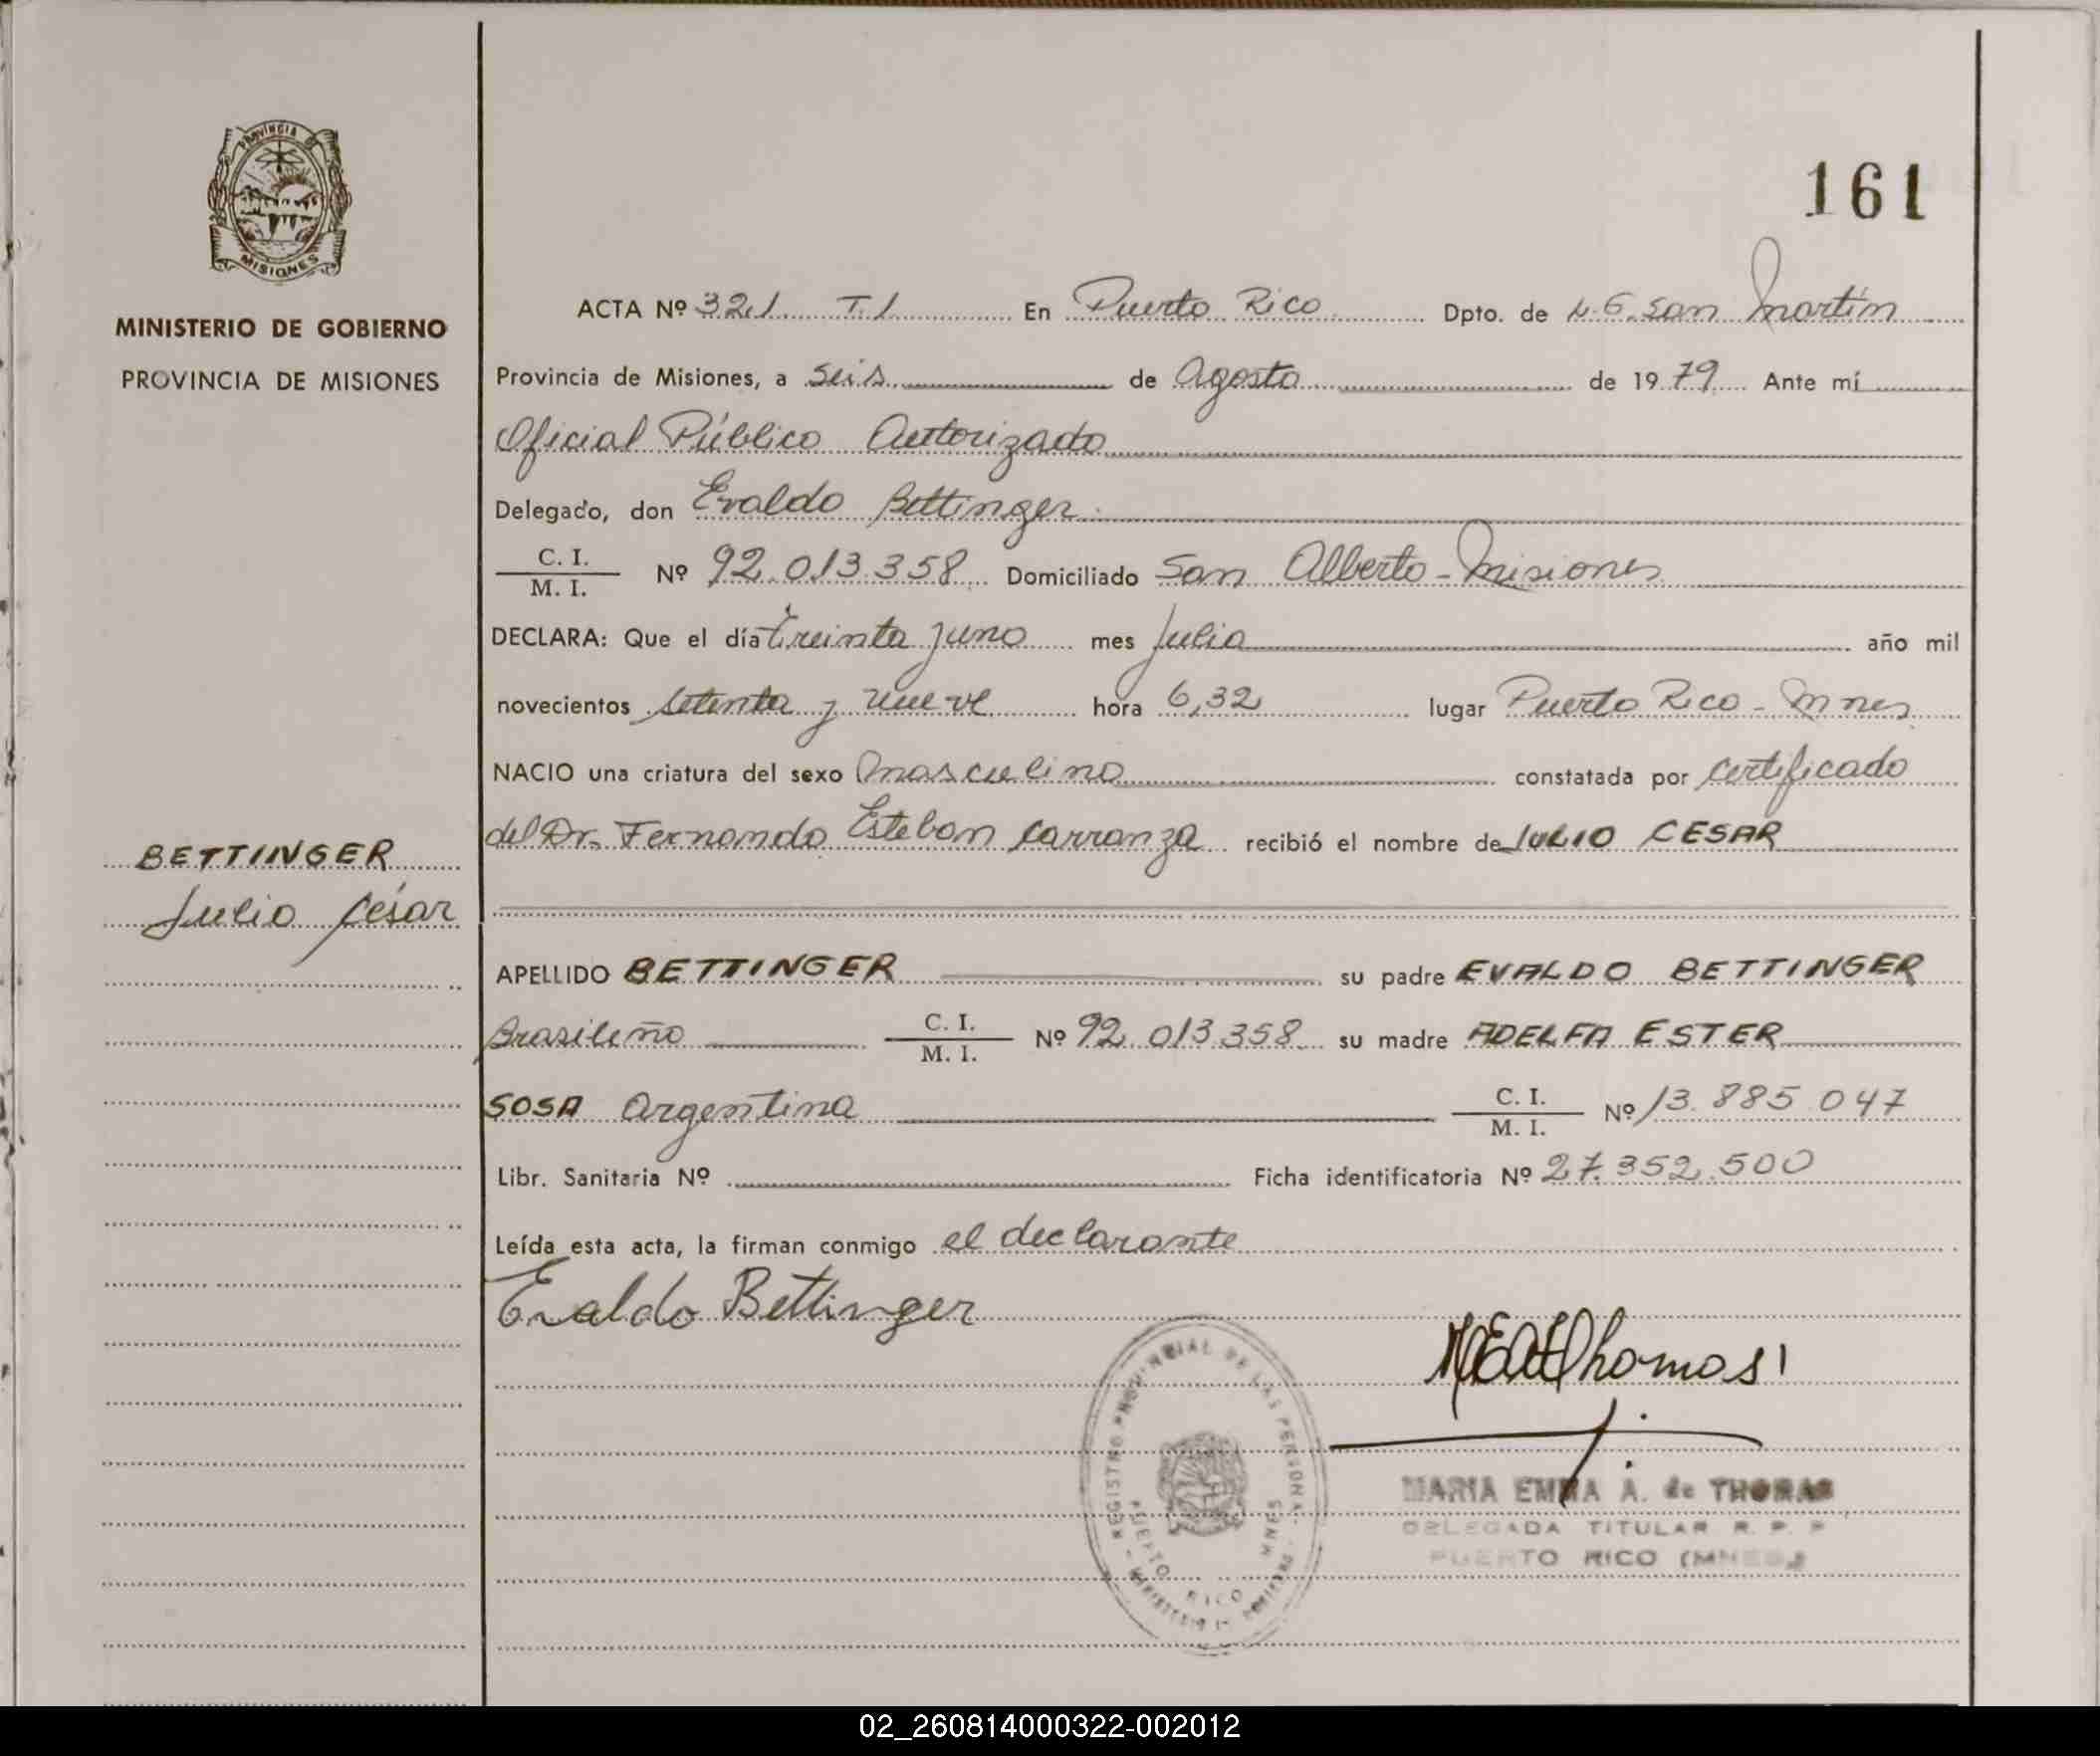 PROVINCIA
MISIONES
MINISTERIO DE GOBIERNO
PROVINCIA DE MISIONES
BETTINGER
Julio César
161
ACTA Nº 321 T.1 En Puerto Rico Dpto. de L. G. San Martín
Provincia de Misiones, a seis de Agosto de 1979 Ante mí
Oficial Público Autorizado
Delegado, don Evaldo Bettinger
C. I.
M. I. Nº 92.013.358 Domiciliado San Alberto - Misiones
DECLARA: Que el día treinta y uno mes Julio año mil
novecientos setenta y nueve hora 6,32 lugar Puerto Rico - Mnes
NACIO una criatura del sexo masculino constatada por certificado
del Dr. Fernando Esteban Carranza recibió el nombre de JULIO CESAR
APELLIDO BETTINGER su padre EVALDO BETTINGER
Brasileño C. I.
M. I. Nº 92.013.358 su madre ADELFA ESTER
SOSA Argentina C. I.
M. I. Nº 13.885.047
Libr. Sanitaria Nº Ficha identificatoria Nº 27.352.500
Leída esta acta, la firman conmigo el declarante
Evaldo Bettinger
REGISTRO PROVINCIAL DE LAS PERSONAS
PUERTO RICO MNES
MARIA EMMA A. de THOMAS
DELEGADA TITULAR R. P. P
PUERTO RICO (MNES.)
02_260814000322-002012